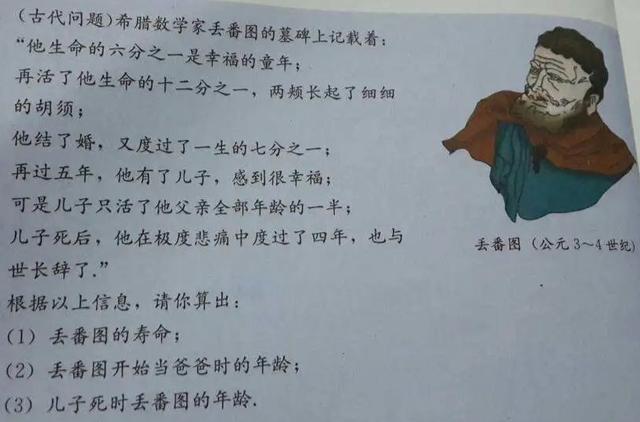 (古代问题)希腊数学家丢番图的墓碑上记载着:
“他生命的六分之一是幸福的童年;
再活了他生命的十二分之一,两颊长起了细细
的胡须;
他结了婚,又度过了一生的七分之一;
再过五年,他有了儿子,感到很幸福;
可是儿子只活了他父亲全部年龄的一半;
儿子死后,他在极度悲痛中度过了四年,也与
世长辞了.”
根据以上信息,请你算出:
(1) 丢番图的寿命;
(2) 丢番图开始当爸爸时的年龄;
(3) 儿子死时丢番图的年龄.
丢番图(公元3~4世纪)